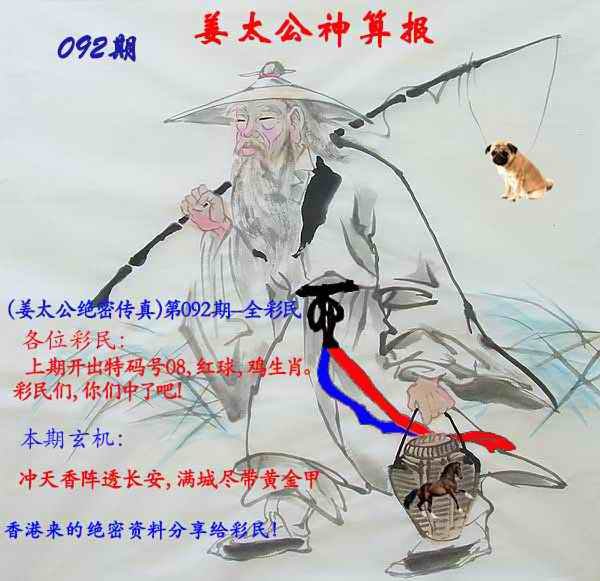 姜太公神算报
092期
(姜太公绝密传真)第092期–全彩民
各位彩民:
上期开出特码号08,红球,鸡生肖。
彩民们,你们中了吧!
本期玄机:
冲天香阵透长安,满城尽带黄金甲
香港来的绝密资料分享给彩民!